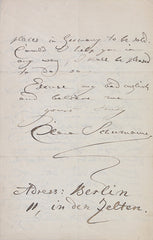 places, in Germany to be sold.
Could I help you in
any way, I shall be pleased
to do so.
Excuse my bad english
and believe me
yours truly
Clara Schumann
Adress: Berlin
11, in den Zelten.